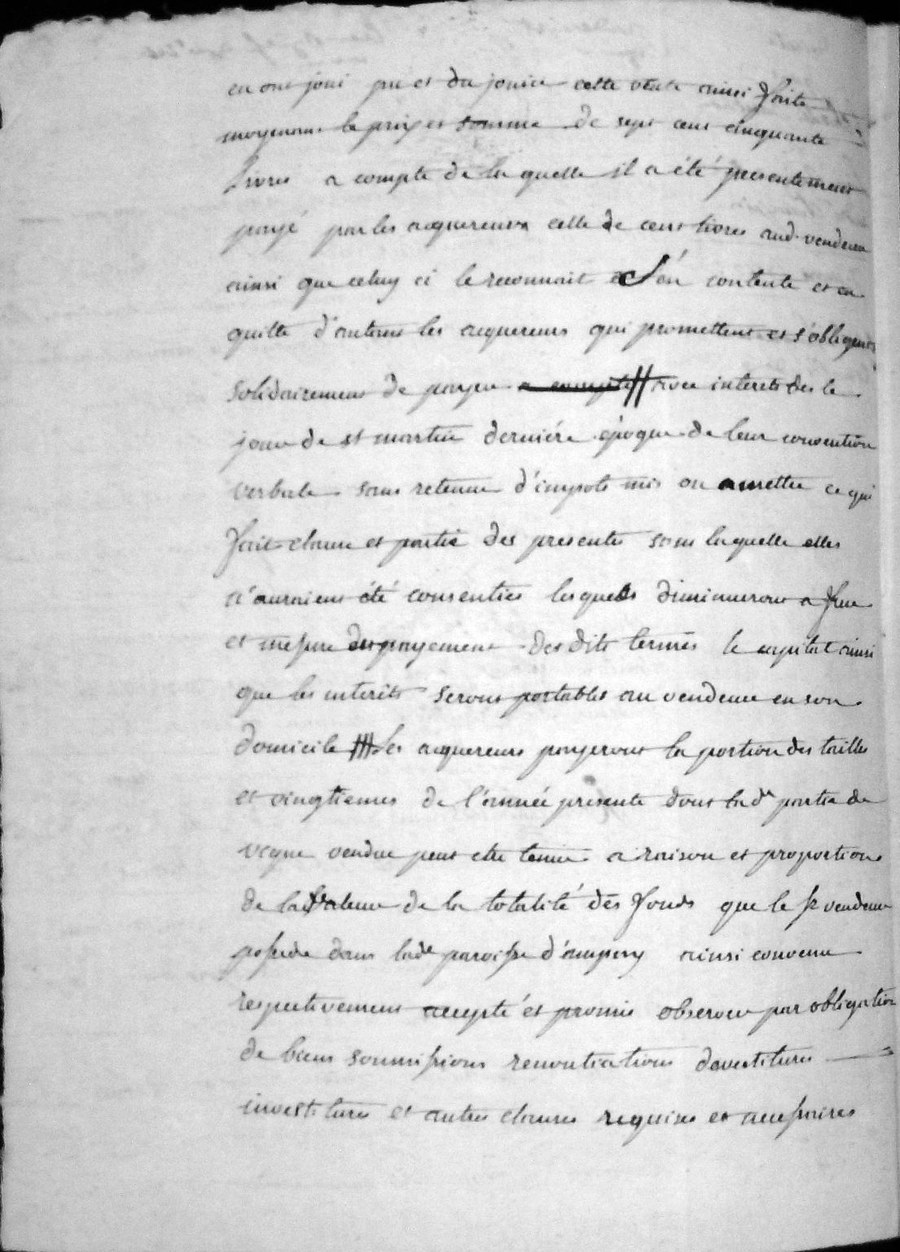 en ont joui pu et du jouir cette vente ainsi faite
moyenant le prix et somme de sept cens cinquante
livres a compte de la quelle il a été presentement
payé par les acquereurs celle de cent livres aud. vendeur
ainsi que celuy ci le reconnait S'en contente et en
quitte d'autant les acquereurs qui promettent et s'obligent
solidairement de payer a compte avec interets des le
jour de st martin derniére époque de leur convention
verbale sans retenue d'impots mis ou a mettre ce qui
fait clause et partie des presentes sans laquelle elles
n'auraient été consenties lesquels diminueront a fur
et mesure du payement desdits termes le capital ainsi
que les interets seront portables au vendeur en son
domicile Les acquereurs payeront la portion des tailles
et vingtiemes de l'année presente dont lade partie de
vigne vendue peut etre tenue a raison et proportion
de la valeur de la totalité des fonds que le sr vendeur
possede dans lade paroisse d'ampuy ainsi convenu
respectivement accepté et promis observer par obligation
de biens soumissions renontiations devestitures
investitures et autres clauses requises et accessoires